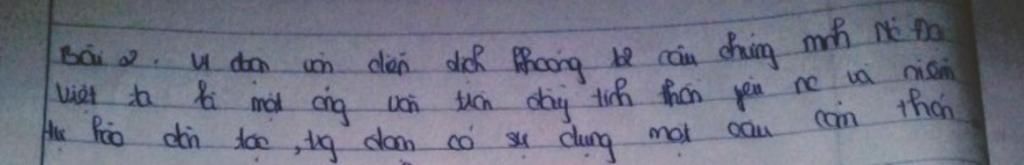 Bài 2. Vt đoạn văn diễn dịch khoảng 12 câu chứng mh Ng Đa
Việt ta là một áng văn tràn đầy tinh thần yêu nc và niềm
tự hào dân tộc, tg đoạn có sử dụng một câu cảm thán